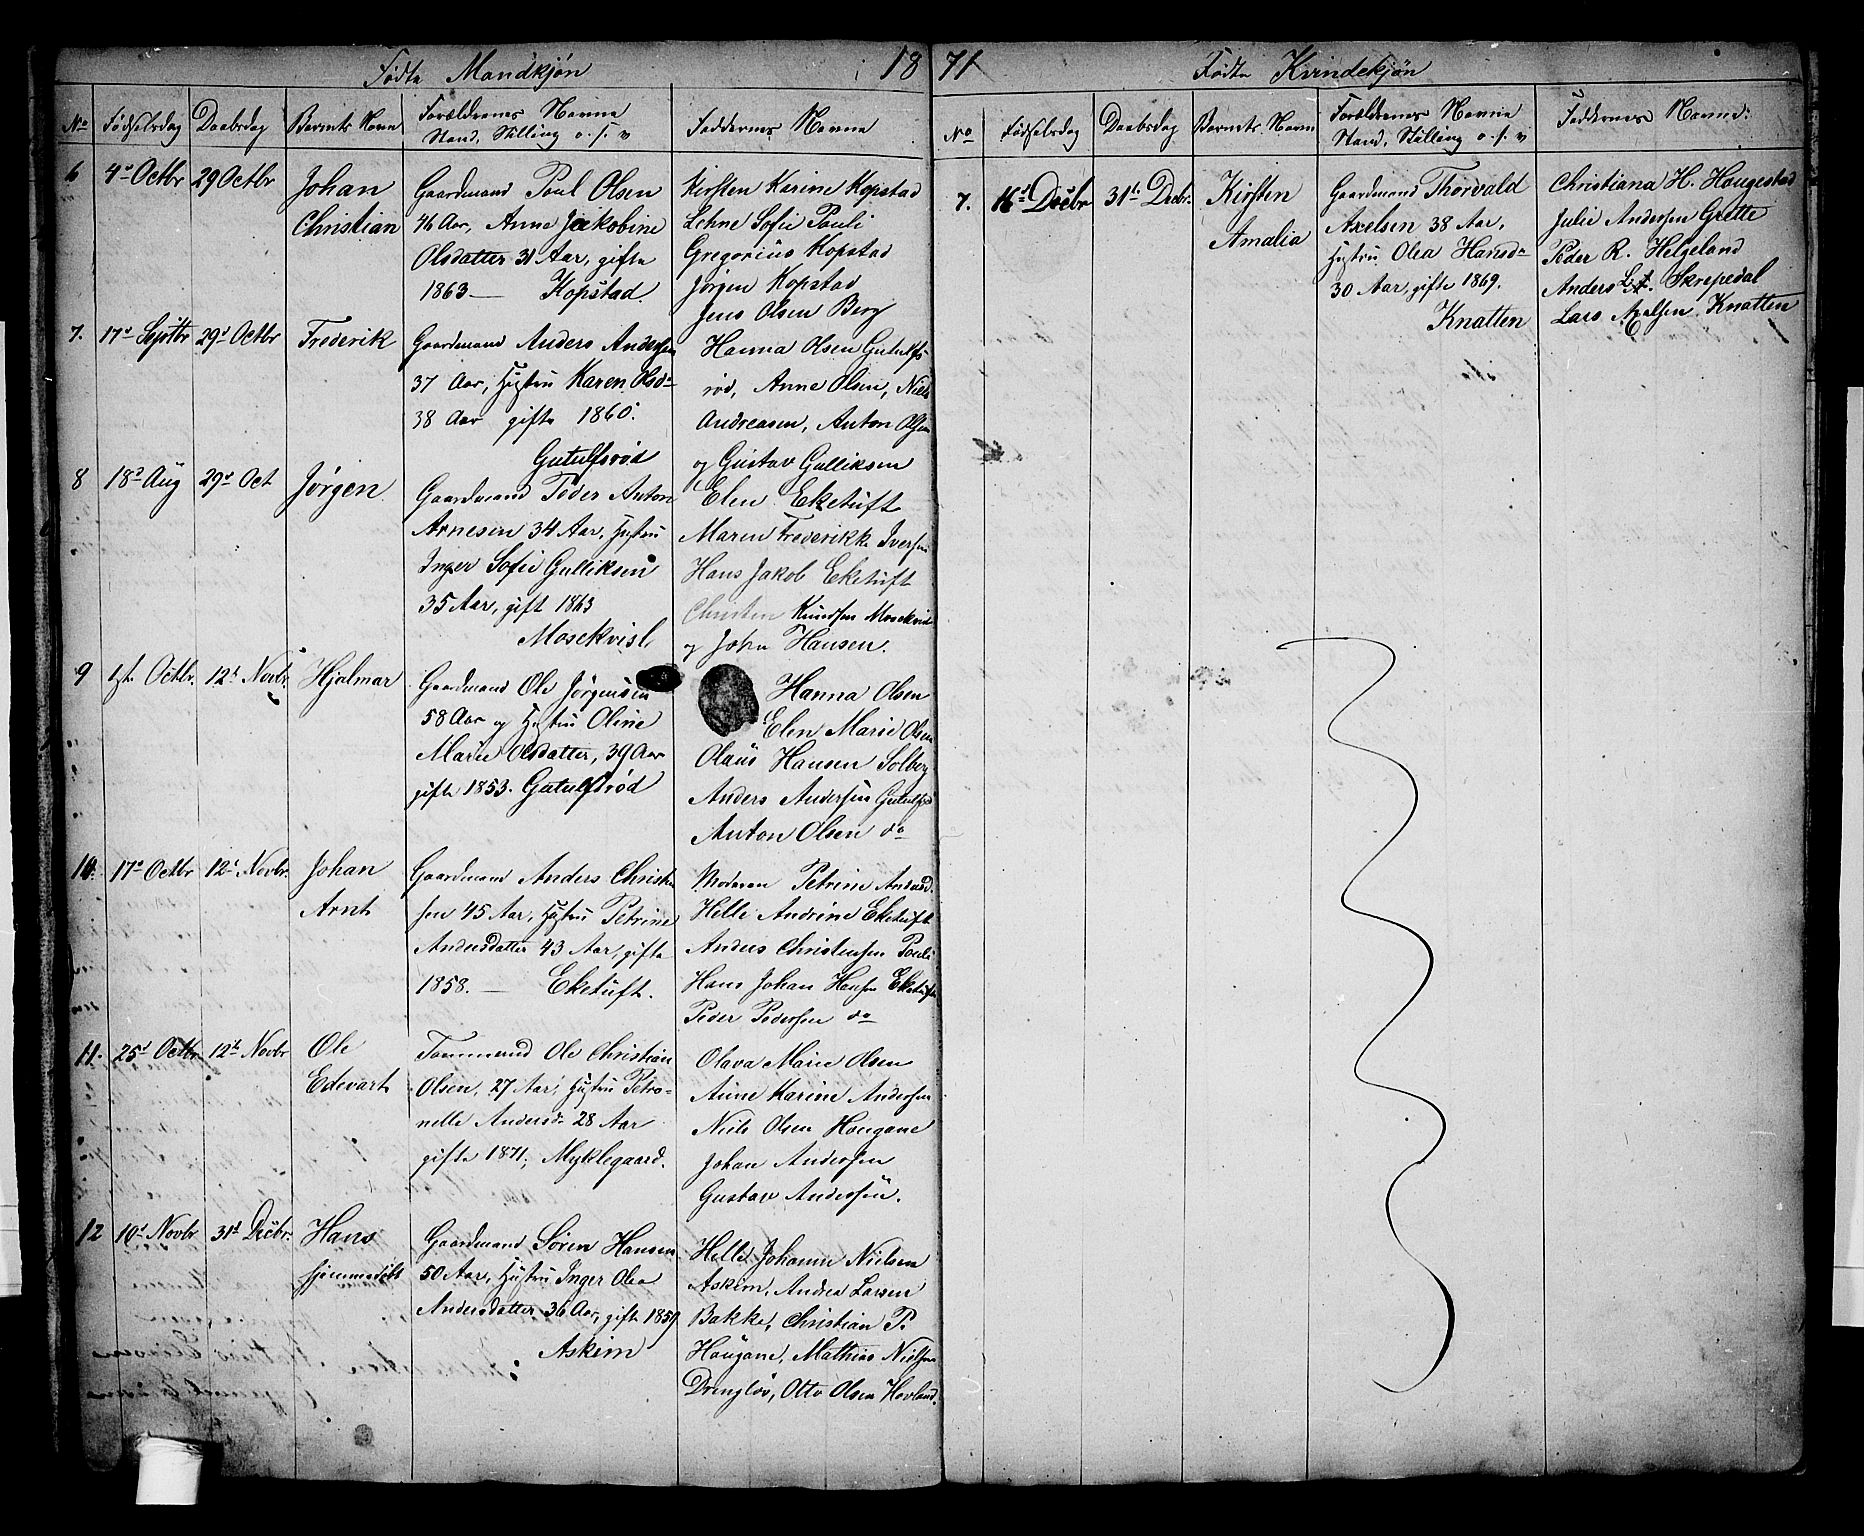 Fødte Mandkjøn 18
No Fødselsdag Daabsdag Barnets Navn Forældrenes Navne Stand, Stilling o. s. v Faddernes Navne
6 4de Octbr 29 Octbr Johan Christian
Gaardmand Poul Olsen
46 Aar, Anne Jakobine
Olsdatter 31 Aar, gifte
1863 — Kopstad
Kirsten Karine Kopstad
Lehne Sofie Pauli
Gregorius Kopstad
Jørgen Kopstad
Jens Olsen Berg
7. 17de Septbr 29de Octbr Frederik
Gaardmand Anders Andersen
37 Aar, Hustru Karen Olsdr
38 Aar gifte 1860.
Gutulfsrød
Hanna Olsen Gutulfs
rød, Anne Olsen, Niels
Andreasen, Anton Olsen
og Gustav Gulliksen
8 18de Aug 29de Oct Jørgen
Gaardmand Peder Anton
Arnesen 34 Aar, Hustru
Inger Sofie Gulliksen
35 Aar, gift 1863
Mosekvisl.
Elen Eketuft
Maren Frederikke Iversen
Hans Jakob Eketuft
Christen Knudsen Mosekvisl
og John Hansen.
9 1st. Octbr. 12te Novbr. Hjalmar
Gaardmand Ole Jørgensen
58 Aar og Hustru Oline
Marie Olsdatter, 39 Aar
gifte 1853. Gutulfsrød
Hanna Olsen
Elen Marie Olsen
Olaus Hansen Solberg
Anders Andersen Gutulfsrød
Anton Olsen do
10. 17de Octbr 12te Novbr. Johan Arnt
Gaardmand Anders Christen
sen 45 Aar, Hustru Petrine
Andersdatter 43 Aar, gifte
1858. — Eketuft.
Moderen Petrine Andersd.
Helle Andrine Eketuft
Anders Christensen Pauli
Hans Johan Hansen Eketuft
Peder Pedersen do
11. 25de Octbr. 12te Novbr Ole Edevart
Tømmermd Ole Christian
Olsen, 27 Aar, Hustru Petro-
nelle Andersdr 28 Aar
gifte 1871; Myklegaard.
Olava Marie Olsen
Anne Karine Andersen
Niels Olsen Hougane
Johan Andersen
Gustav Andersen.
12 10de Novbr 31te Decbr. Hans hjemmedøbt
Gaardmand Søren Hansen
50 Aar, Hustru Inger Olea
Andersdatter 36 Aar, gifte 1859
Askim
Helle Johanne Nielsen
Askim, Andrea Larsen
Bakke, Christian P.
Haugane, Mathias Nielsen
Drengløs, Otto Olsen Hovland.
71 Fødte Kvindekjøn
No Fødselsdag Daabsdag Barnets Navn Forældrenes Navne Stand, Stilling o. s. v Faddernes Navne:
7. 16de Decbr 31te Decbr. Kirsten Amalia
Gaardmand Thorvald
Axelsen 38 Aar,
Hustru Olea Hansdr
30 Aar, gifte 1869.
Knatten
Christiana H. Haugestad
Julie Andersen Grette
Peder R. Helgeland
Anders Skrepedal
Lars Axelsen Knatten